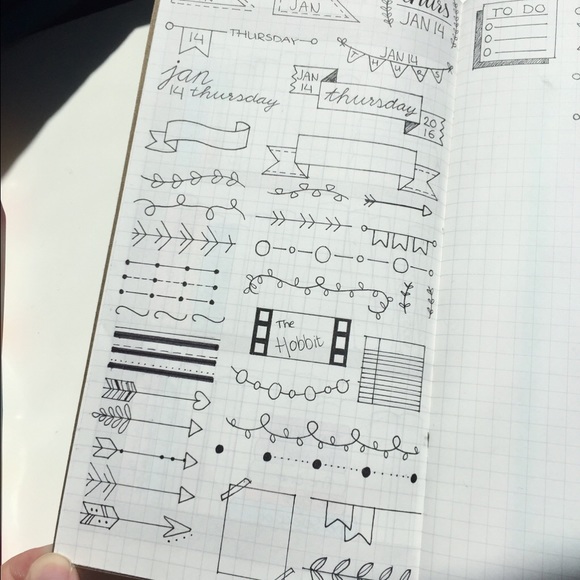 JAN
JAN 14
TO DO
14
THURSDAY
JAN 14
THURS
jan
14 thursday
JAN
14
thursday
20
16
The
Hobbit